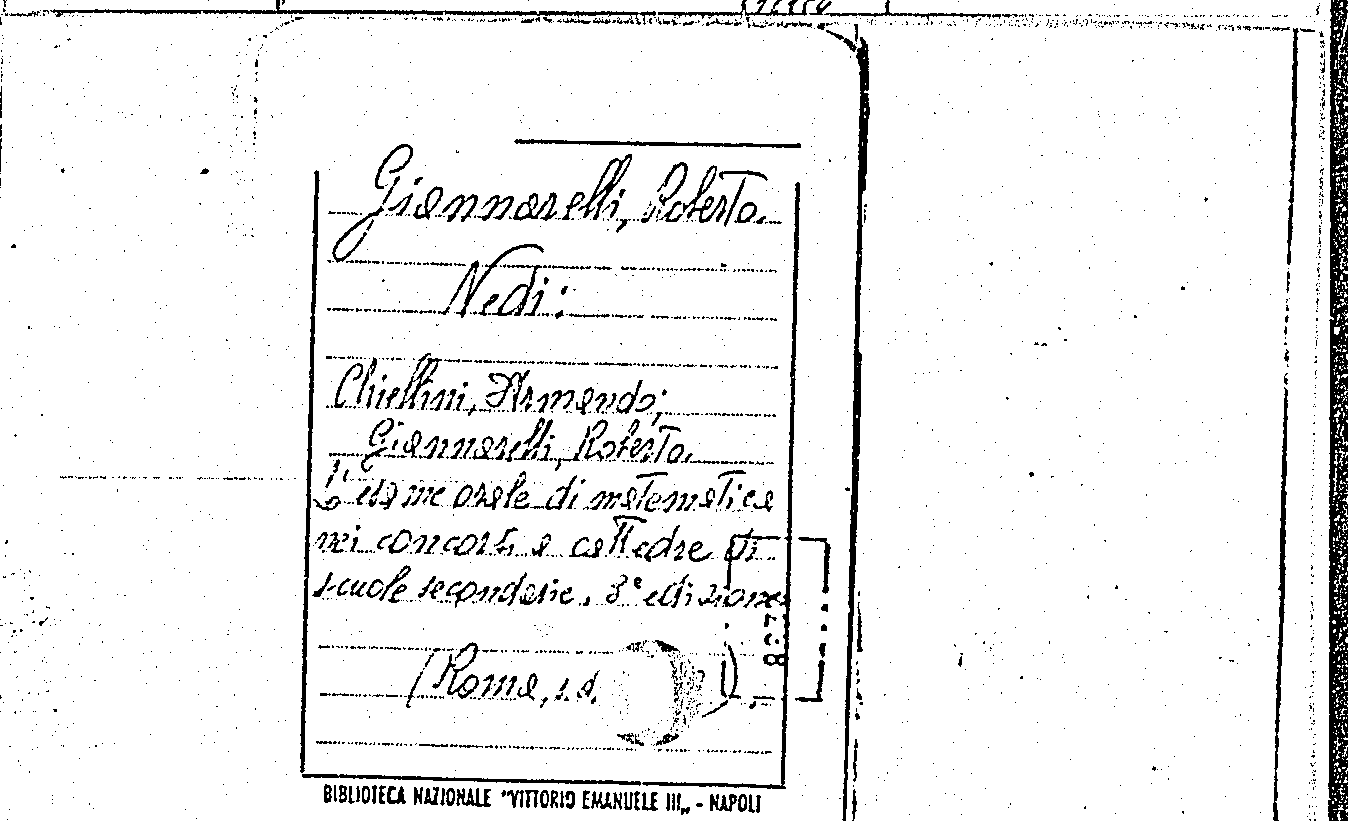 Giannarelli, Roberto.
Vedi:
Chiellini, Armando;
Giannarelli, Roberto.
L'esame orale di matematica
nei concorsi a cattedre di
scuole secondarie. 3ª edizione.
(Roma, s.d.
)
BIBLIOTECA NAZIONALE "VITTORIO EMANUELE III„ - NAPOLI